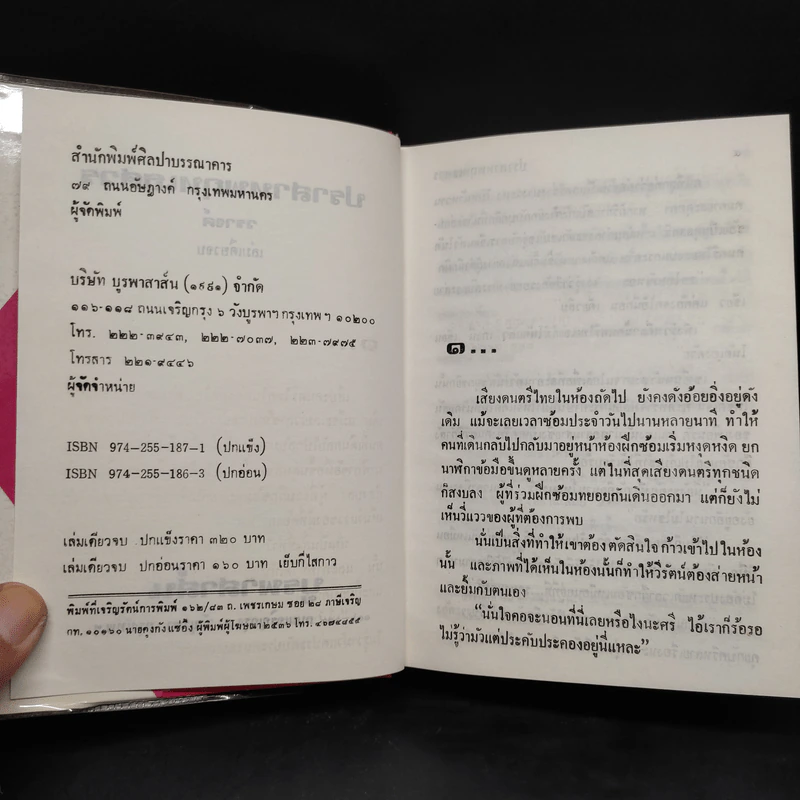 สำนักพิมพ์ศิลปาบรรณาคาร
๗๙ ถนนอัษฎางค์ กรุงเทพมหานคร
ผู้จัดพิมพ์
บริษัท บูรพาสาส์น (๑๙๙๑) จำกัด
๑๑๖-๑๑๘ ถนนเจริญกรุง ๖ วังบูรพาฯ กรุงเทพฯ ๑๐๒๐๐
โทร. ๒๒๒-๓๙๔๓, ๒๒๒-๗๐๓๗, ๒๒๓-๗๙๗๕
โทรสาร ๒๒๑-๙๔๔๖
ผู้จัดจำหน่าย
ISBN 974-255-187-1 (ปกแข็ง)
ISBN 974-255-186-3 (ปกอ่อน)
เล่มเดียวจบ ปกแข็งราคา ๓๒๐ บาท
เล่มเดียวจบ ปกอ่อนราคา ๑๖๐ บาท เย็บกี่ไสกาว
พิมพ์ที่เจริญรัตน์การพิมพ์ ๑๖๒/๔๓ ถ. เพชรเกษม ซอย ๒๘ ภาษีเจริญ
กท. ๑๐๑๖๐ นายคุงกัง แซ่อึ้ง ผู้พิมพ์ผู้โฆษณา ๒๕๓๖ โทร. ๔๖๗๔๘๕๕
๑...
เสียงดนตรีไทยในห้องถัดไป ยังคงดังอ้อยอิ่งอยู่ดัง
เดิม แม้จะเลยเวลาซ้อมประจำวันไปนานหลายนาที ทำให้
คนที่เดินกลับไปกลับมาอยู่หน้าห้องฝึกซ้อมเริ่มหงุดหงิด ยก
นาฬิกาข้อมือขึ้นดูหลายครั้ง แต่ในที่สุดเสียงดนตรีทุกชนิด
ก็สงบลง ผู้ที่ร่วมฝึกซ้อมทยอยกันเดินออกมา แต่ก็ยังไม่
เห็นวี่แววของผู้ที่ต้องการพบ
นั่นเป็นสิ่งที่ทำให้เขาต้องตัดสินใจ ก้าวเข้าไปในห้อง
นั้น และภาพที่ได้เห็นในห้องนั้นก็ทำให้วีรัตน์ต้องส่ายหน้า
และยิ้มกับตนเอง
“นั่นใจคอจะนอนที่นี่เลยหรือไงนะศรี ไอ้เราก็ร้อรอ
ไม่รู้ว่ามัวแต่ประคับประคองอยู่นี่แหละ”